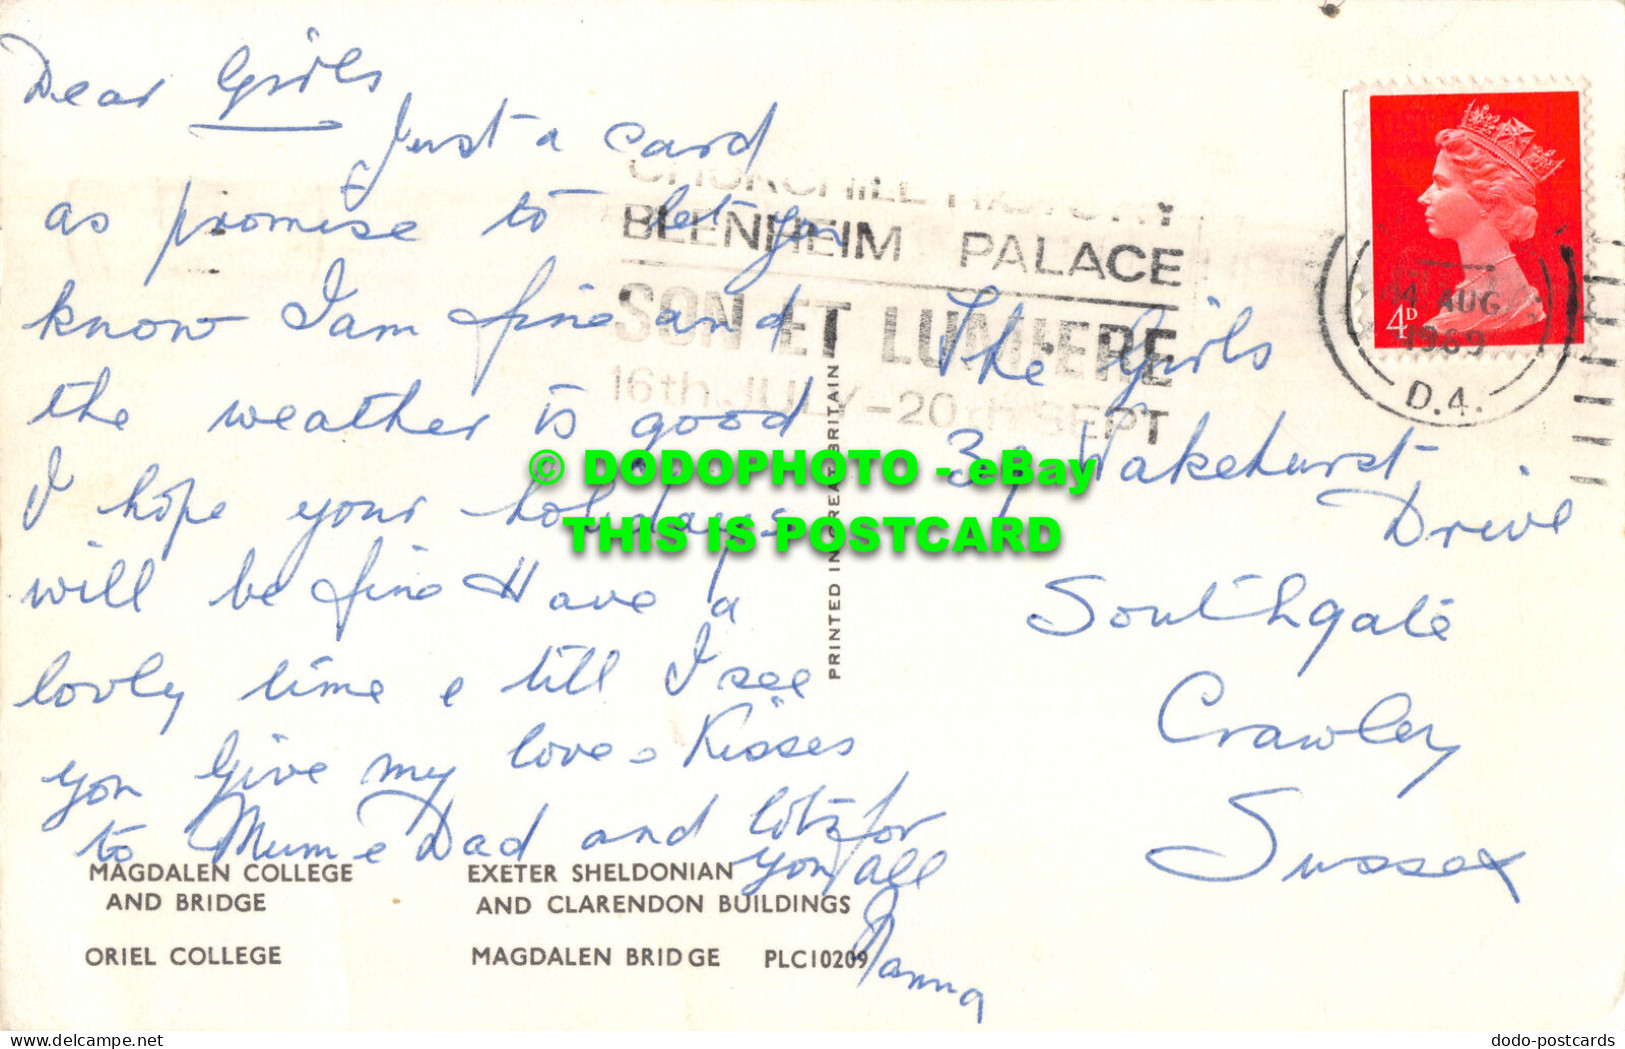 Dear Girls
Just a card
as promise to let you
know I am fine and
the weather is good
I hope your holidays
will be fine Have a
lovly time & till I see
you Give my love & Kisses
to Mum & Dad and lots for
you all
Nanna
CHURCHILL HISTORY
BLENHEIM PALACE
SON ET LUMIERE
16th JULY - 20th SEPT
4D
AUG
1969
D.A.
The Girls
Wakehurst
Drive
Southgate
Crawley
Sussex
PRINTED IN GREAT BRITAIN
© DODOPHOTO - eBay
THIS IS POSTCARD
MAGDALEN COLLEGE
AND BRIDGE
ORIEL COLLEGE
EXETER SHELDONIAN
AND CLARENDON BUILDINGS
MAGDALEN BRIDGE PLC10209
delcampe.net
dodo-postcards